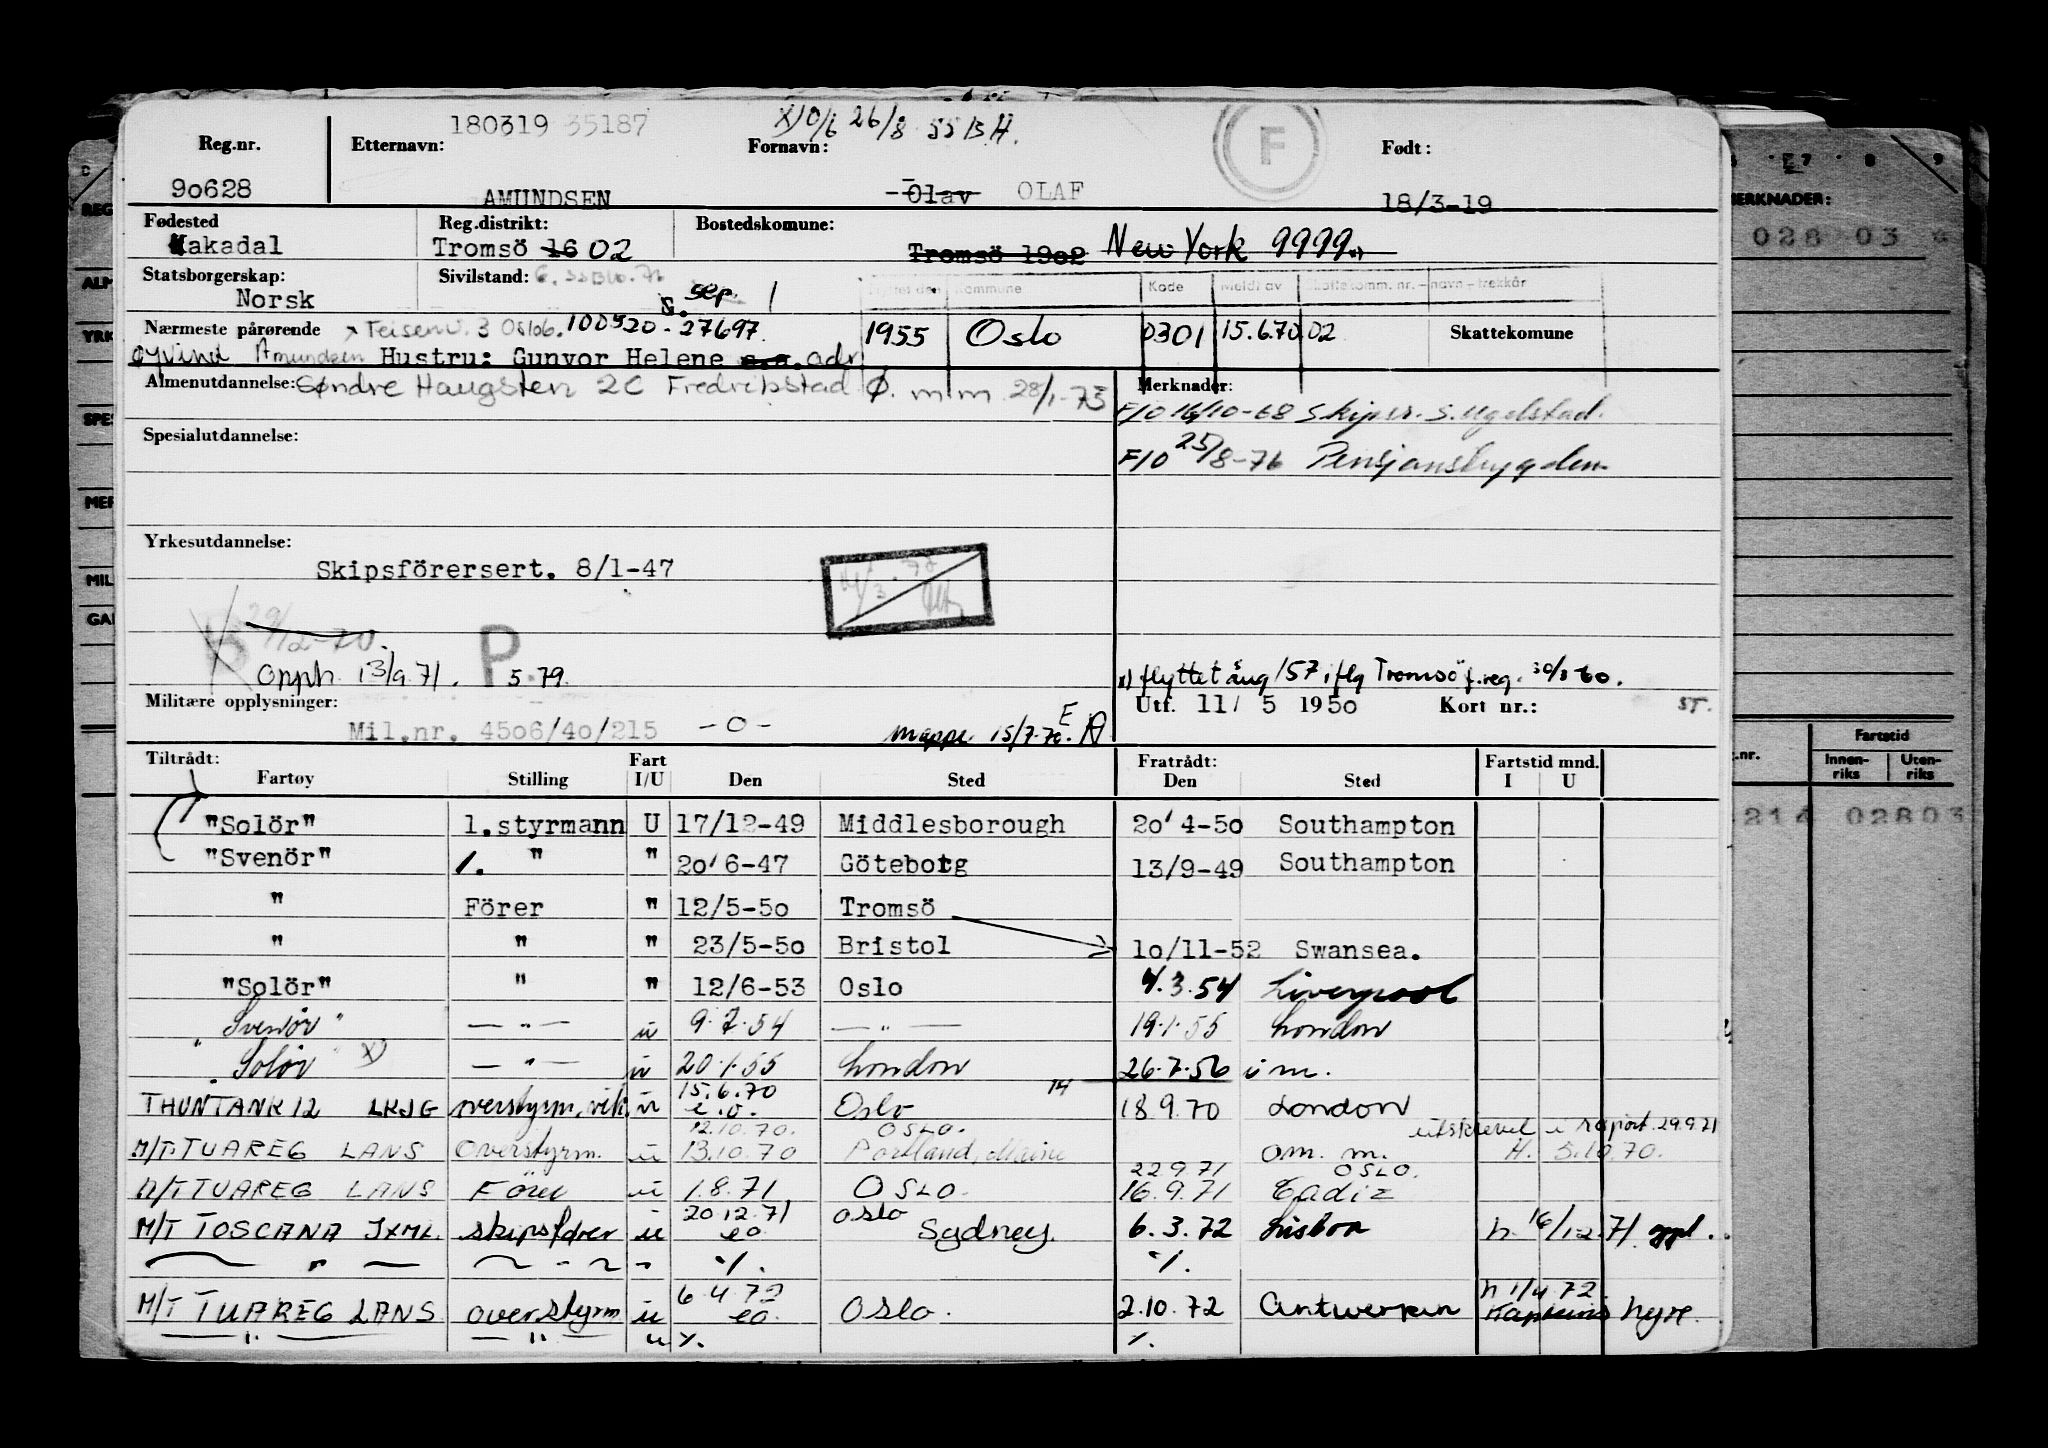 180319 35187 X) 0/6 26/8 55 B.H.
Reg.nr. Etternavn: Fornavn: F Født:
90628 AMUNDSEN Olav OLAF 18/3-19
Fødested Reg.distrikt: Bostedskomune:
Makadal Tromsö 16 02 Tromsö 1902 New York 9999
Statsborgerskap: Sivilstand: Kommune Kode Meldt av Skattekomm. nr. - navn - trekkår
Norsk s. sep. 1
Nærmeste pårørende 3 Oslo 6. 100520-27697. 1955 Oslo 0301 15.6.70 02 Skattekomune
Øyvind Amundsen Hustru: Gunvor Helene s.a. adr.
Almenutdannelse: Søndre Haugsten 2C Fredrikstad Ø. m/m 28/1-73 Merknader:
F10 16/10-68 Skipsr. S. Ugelstad.
Spesialutdannelse:
F10 25/8-76 Pensjonstrygden
Yrkesutdannelse:
Skipsförersert. 8/1-47
29/12-70.
Opph. 13/9.71. P 5.79.
x) flyttet aug/57, iflg Tromsö f.reg. 30/3-60.
Militære opplysninger: Utf. 11/ 5 1950 Kort nr.: ST.
Mil.nr. 4506/40/215 -0- mappe 15/7.70. E
Tiltrådt: Fart Fratrådt: Fartstid mnd.
Fartøy Stilling I/U Den Sted Den Sted I U
"Solör" 1.styrmann U 17/12-49 Middlesborough 20/4-50 Southampton
"Svenör" 1. " " 20/6-47 Göteborg 13/9-49 Southampton
" Förer " 12/5-50 Tromsö
" " " 23/5-50 Bristol 10/11-52 Swansea.
"Solör" " " 12/6-53 Oslo 4.3.54 Liverpool
"Svenör" — " — u 9.7.54 — " — 19.1.55 London
"Solör" x) — " — u 20.1.55 London 26.7.56 i m.
THUNTANK 12 LKJG overstyrm. vik. u 15.6.70 e.o. Oslo 18.9.70 London
12.10.70. OSLO. utskrevet i rapport 29.9.71
M/T. TUAREG LANS Overstyrm. u 13.10.70 Portland, Maine om. m. H. 5.10.70.
22.9.71 OSLO.
M/T TUAREG LANS Förer u 1.8.71 OSLO. 16.9.71 Cadiz
20.12.71 Oslo
M/T TOSCANA JXML skipsfører u eo Sydney. 6.3.72 Lisboa h. 16/12.71. oppl.
— " — — " — " ./. ./.
6.4.72 h 1/4 72.
M/T TUAREG LANS overstyrm u eo. Oslo. 2.10.72 Antwerpen Kapteins hyre.
— " — — " — u ./. ./.
MERKNADER:
028 03
Fartstid
Innenriks Utenriks
214 02803